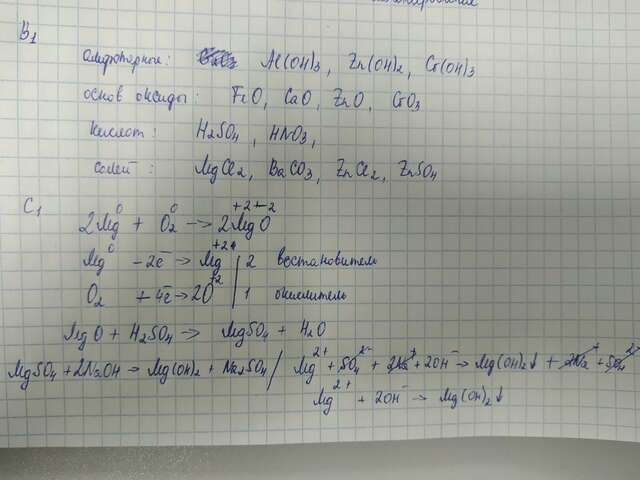 B1
Амфотерные: Al(OH)3, Zn(OH)2, Cr(OH)3
основ оксиды: FeO, CaO, ZnO, CrO3
кислот: H2SO4, HNO3,
солей: MgCl2, BaCO3, ZnCl2, ZnSO4
C1
2Mg⁰ + O2⁰ → 2Mg⁺²O⁻²
Mg⁰ - 2e̅ → Mg⁺² | 2 востановитель
O2 + 4e̅ → 2O⁺² | 1 окислитель
MgO + H2SO4 → MgSO4 + H2O
MgSO4 + 2NaOH → Mg(OH)2 + Na2SO4 / Mg²⁺ + SO4²⁻ + 2Na⁺ + 2OH⁻ → Mg(OH)2↓ + 2Na⁺ + SO4²⁻
Mg²⁺ + 2OH⁻ → Mg(OH)2↓